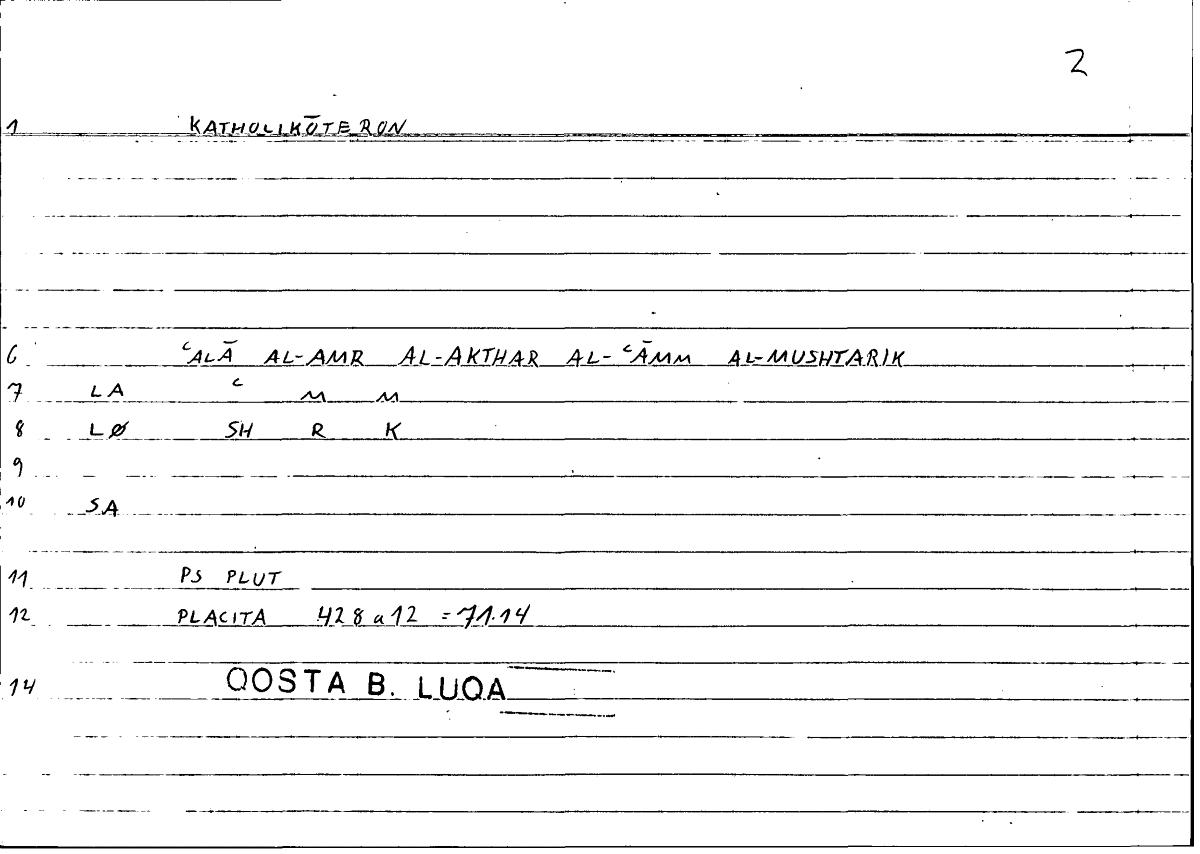 2
1 KATHOLIKŌTERON
6 ʿALĀ AL-AMR AL-AKTHAR AL-ʿĀMM AL-MUSHTARIK
7 LA ʿ M M
8 LØ SH R K
9
10 SA
11 PS PLUT
12 PLACITA 428a12 = 71.14
14 QOSTA B. LUQA